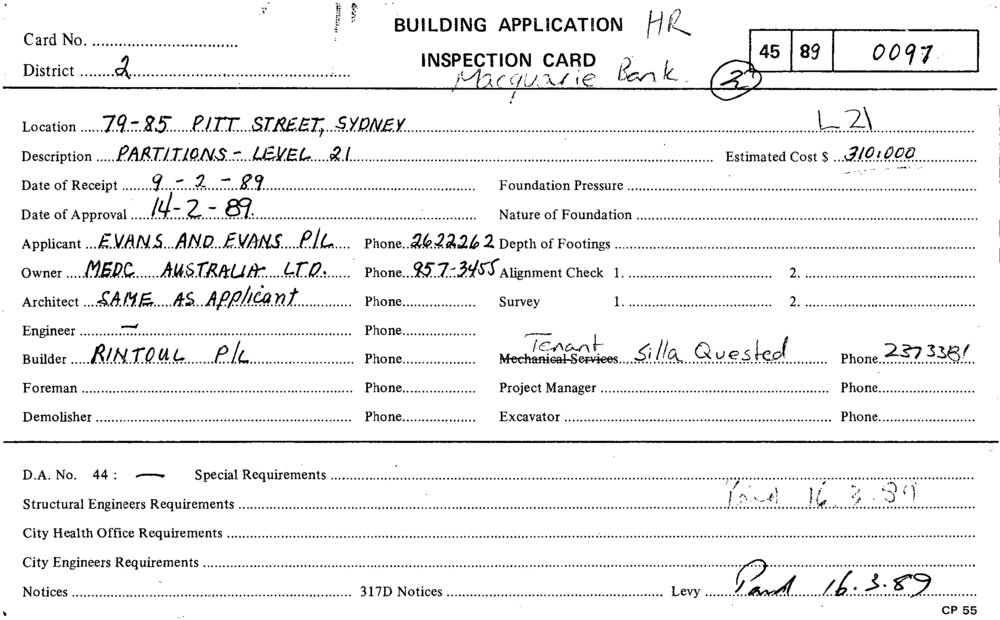 BUILDING APPLICATION HR
Card No.
INSPECTION CARD 45 89 0097
District 2 Macquarie Bank 2
Location 79-85 PITT STREET, SYDNEY L21
Description PARTITIONS - LEVEL 21 Estimated Cost $ 310,000
Date of Receipt 9 - 2 - 89 Foundation Pressure
Date of Approval 14-2-89. Nature of Foundation
Applicant EVANS AND EVANS P/L Phone 2622262 Depth of Footings
Owner MEDC AUSTRALIA LTD. Phone 957-3455 Alignment Check 1. 2.
Architect SAME AS Applicant Phone Survey 1. 2.
Engineer — Phone
Builder RINTOUL P/L Phone Mechanical Services Tenant Silla Quested Phone 2373381
Foreman Phone Project Manager Phone
Demolisher Phone Excavator Phone
D.A. No. 44 : — Special Requirements
Structural Engineers Requirements Paid 16.3.89
City Health Office Requirements
City Engineers Requirements
Notices 317D Notices Levy Paid 16.3.89
CP 55